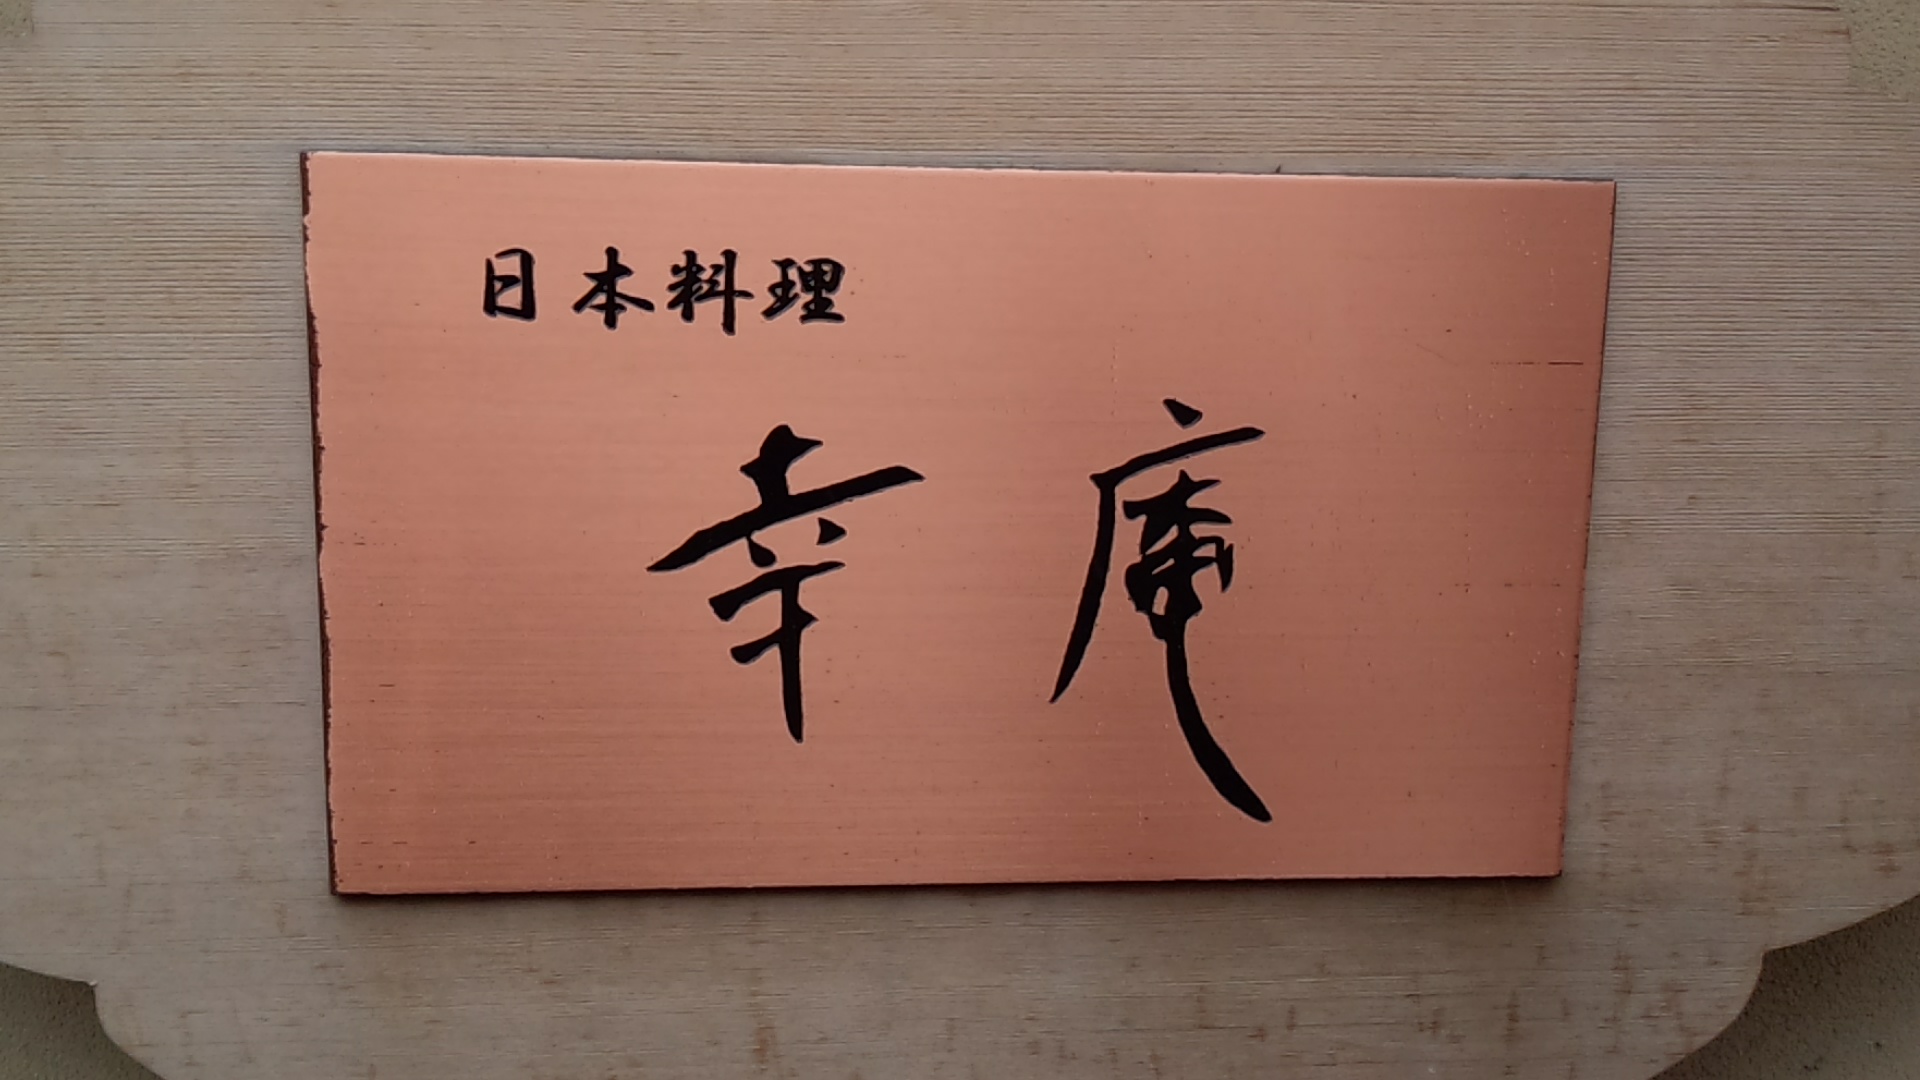 日本料理
幸庵